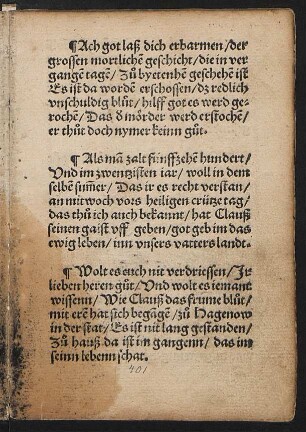 ¶Ach got laß dich erbarmen/der
grossen mortlichē geschicht/die in ver
gangē tagē/Zů byetenhē geschehē ist
Es ist da wordē erschossen/dz redlich
vnschuldig blůt/hilff got es werd ge-
rochē/Das ð mörder werd erstochē/
er thůt doch nymer keinn gůt.
¶Als mā zalt fünffzehē hundert/
Vnd im zwentzisten iar/woll in dem
selbē sum̄er/Das ir es recht verstan/
an mitwoch vors heiligen crütze tag/
das thů ich auch bekannt/hat Clauß
seinen gaist vff geben/got geb im das
ewig leben/inn vnsers vatters landt.
¶Wolt es euch nit verdriessen/Jr
lieben heren gůt/Vnd wolt es iemant
wissenn/Wie Clauß das frume blůt/
mit erē hat sich begāgē/zů Hagenow
in der stat/Es ist nit lang gestanden/
Zů hauß da ist im gangenn/das im
seinn lebenn schat.
401